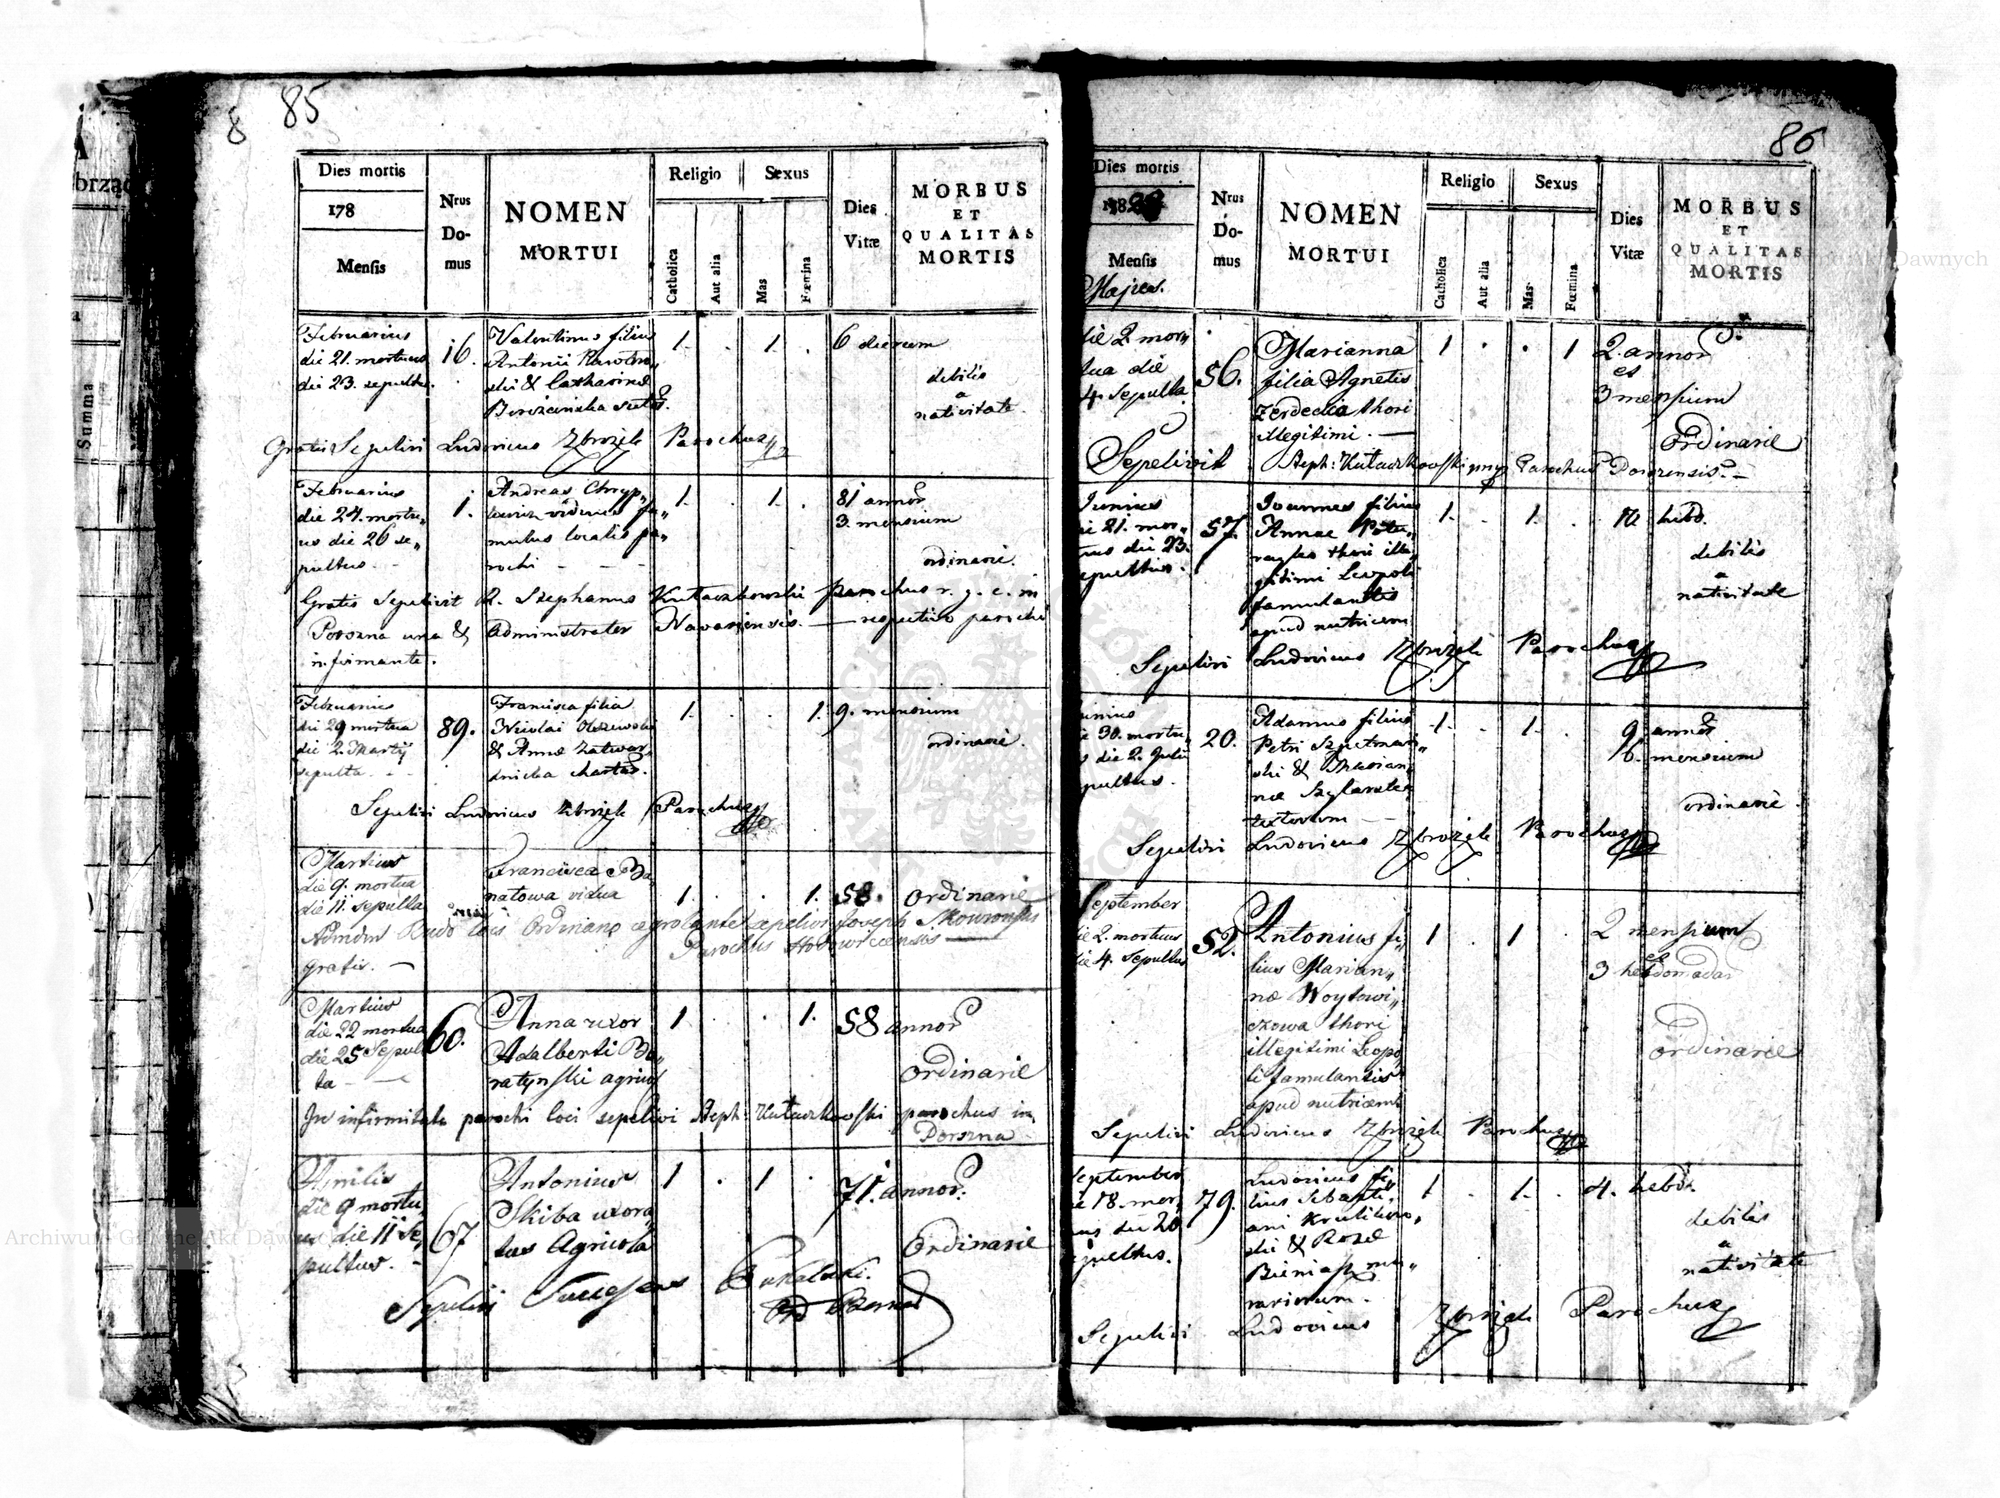 8 85
Dies mortis
178
Mensis
Nrus
Do-
mus
NOMEN
MORTUI
Religio
Catholica
Aut alia
Sexus
Mas
Fœmina
Dies
Vitæ
MORBUS
ET
QUALITAS
MORTIS
Februarius
die 21. mortuus
die 23. sepultus.
16.
Valentinus filius
Antonii
& Catharinæ
1. . 1. .
6 dierum
debilis
a
nativitate.
Gratis Sepelivi Ludovicus Zbrożek Parochus
Februarius
die 24. mortu„
us die 26 se„
pultus. -
1.
Andreas Chryp„
viduus fa„
mulus localis pa„
rochi - - -
1. . 1. .
81 annor
3. mensium
ordinarie.
Gratis Sepelivit R. Stephanus Kutaczkowski parochus r. g. c. in
Porszna una & Administrator Navariensis. — respectivo parocho
infirmante.
Februarius
die 29 mortua
die 2. Martij
sepulta. - -
89.
Francisca filia
Nicolai
& Annæ Zatwar„
dnicka
1. . . 1.
9. mensium
ordinarie.
Sepelivi Ludovicus Zbrożek Parochus
Martius
die 9. mortua
die 11. sepulta
Francisca Ba„
natowa vidua
1. . . 1.
58.
Ordinarie
loci Ordinario ægrotante sepelivi Joseph
Parochus
gratis. —
Martius
die 22 mortua
die 25 Sepul
ta — —
60.
Anna uxor
Adalberti Ba„
ratynski
1 . . 1.
58 annor
Ordinarie
In infirmitate parochi loci sepelivi Steph: Kutaczkowski parochus in
Porszna
Aprilis
die 9 mortu„
us die 11 se„
pultus. -
67
Antonius
Skiba uxora„
tus Agricola
1 . 1 .
71. annor:
Ordinarie
Sepelivi
86
Dies mortis
Mensis
Majus.
Nrus
Do-
mus
NOMEN
MORTUI
Religio
Catholica
Aut alia
Sexus
Mas
Fœmina
Dies
Vitæ
MORBUS
ET
QUALITAS
MORTIS
die 2. mor„
tua die
4. sepulta
56.
Marianna
filia Agnetis
Zerdecka thori
illegitimi. —
1 . . 1
2. annor
et
3 mensium
Ordinarie
Sepelivit Steph: Kutaczkowski Parochus Porsznensis. -
Junius
die 21. mor„
tuus die 23.
sepultus.
57.
Joannes filius
Annæ
thori ille„
gitimi Leopoli
famulantis
apud nutricem
1. . 1. .
hebd.
debilis
a
nativitate
Sepelivi Ludovicus Zbrożek Parochus
Junius
die 30. mortu„
us die 2. Julii
sepultus.
20.
Adamus filius
Petri Szpetmań„
ski & Marian„
næ
textorum —
1. . 1. .
9 annor
6. mensium
ordinarie.
Sepelivi Ludovicus Zbrożek Parochus
September
die 2. mortuus
die 4. sepultus
52.
Antonius fi„
lius Marian„
næ Woytowi„
czowa thori
illegitimi Leopo
li famulantis
apud nutricem
1 . 1 .
2 mensium
et
3 hebdomadar
Ordinarie
Sepelivi Ludovicus Zbrożek Parochus
September
die 18. mor„
tuus die 20
sepultus.
79.
Ludovicus fi„
lius Sebasti„
ani
& Rosæ
mu„
rariorum.
1 . 1. .
4. hebd.
debilis
a
nativitate
Sepelivi Ludovicus Zbrożek Parochus
Archiwum Główne Akt Dawnych